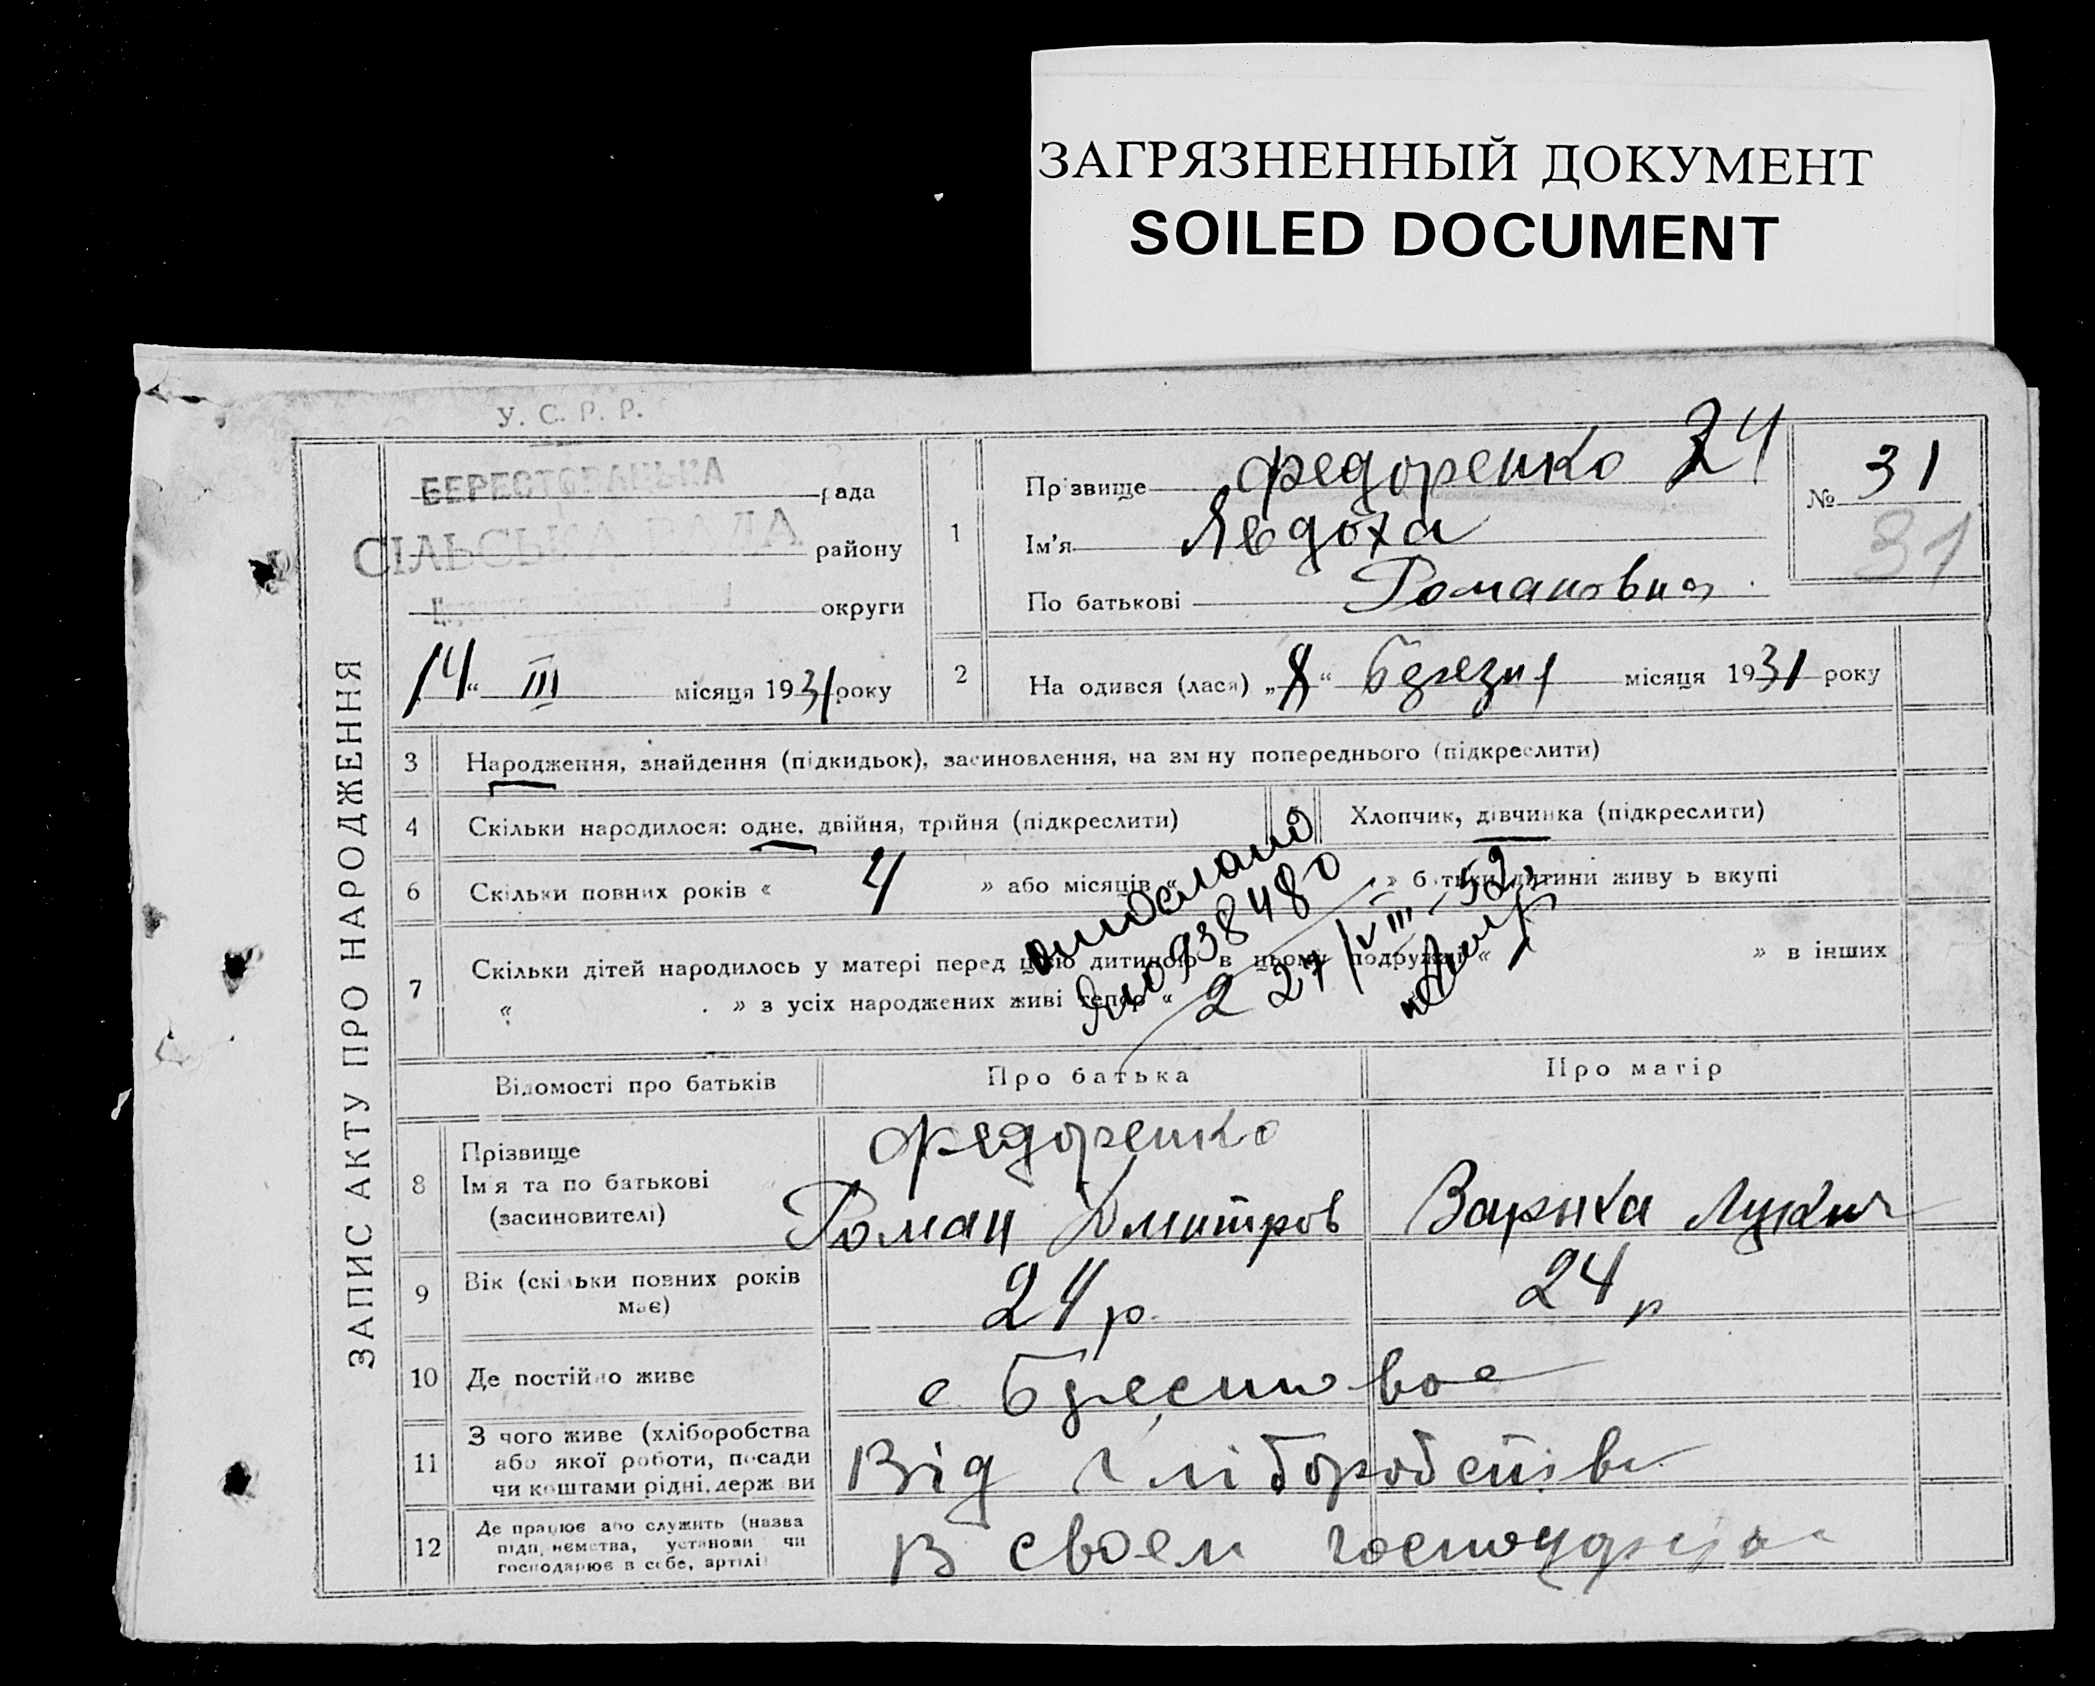 ЗАГРЯЗНЕННЫЙ ДОКУМЕНТ
SOILED DOCUMENT
У. С. Р. Р.
ЗАПИС АКТУ ПРО НАРОДЖЕННЯ
БЕРЕСТОВАНЬКА рада
СІЛЬСЬКА РАДА району
округи
14 “ III місяця 1931 року
1
Прізвище Федоренко 24
Ім'я Явдоха
По батькові Романовна
№ 31
31
2 На одився (лася) „8“ Березня місяця 1931 року
3 Народження, знайдення (підкидьок), засиновлення, на зм ну попереднього (підкреслити)
4 Скільки народилося: одне, двійня, трійня (підкреслити) Хлопчик, дівчинка (підкреслити)
6 Скільки повних років « 4 » або місяців « » батьки дитини живу ь вкупі
7 Скільки дітей народилось у матері перед цією дитиною в цьому подружжі « » в інших
« . » з усіх народжених живі тепер « 2
0938480
27/VIII-52
Відомості про батьків Про батька Про матір
8 Прізвище
Ім'я та по батькові
(засиновителі)
Федоренко
Роман Дмитров Варька Лукич
9 Вік (скільки повних років
має)
24 р. 24 р
10 Де постійно живе с Берестовое
11 З чого живе (хліборобства
або якої роботи, посади
чи коштами рідні, держ ви
Від хліборобства
12 Де працює або служить (назва
підп. иємства, установи чи
господарює в себе, артілі)
В своем